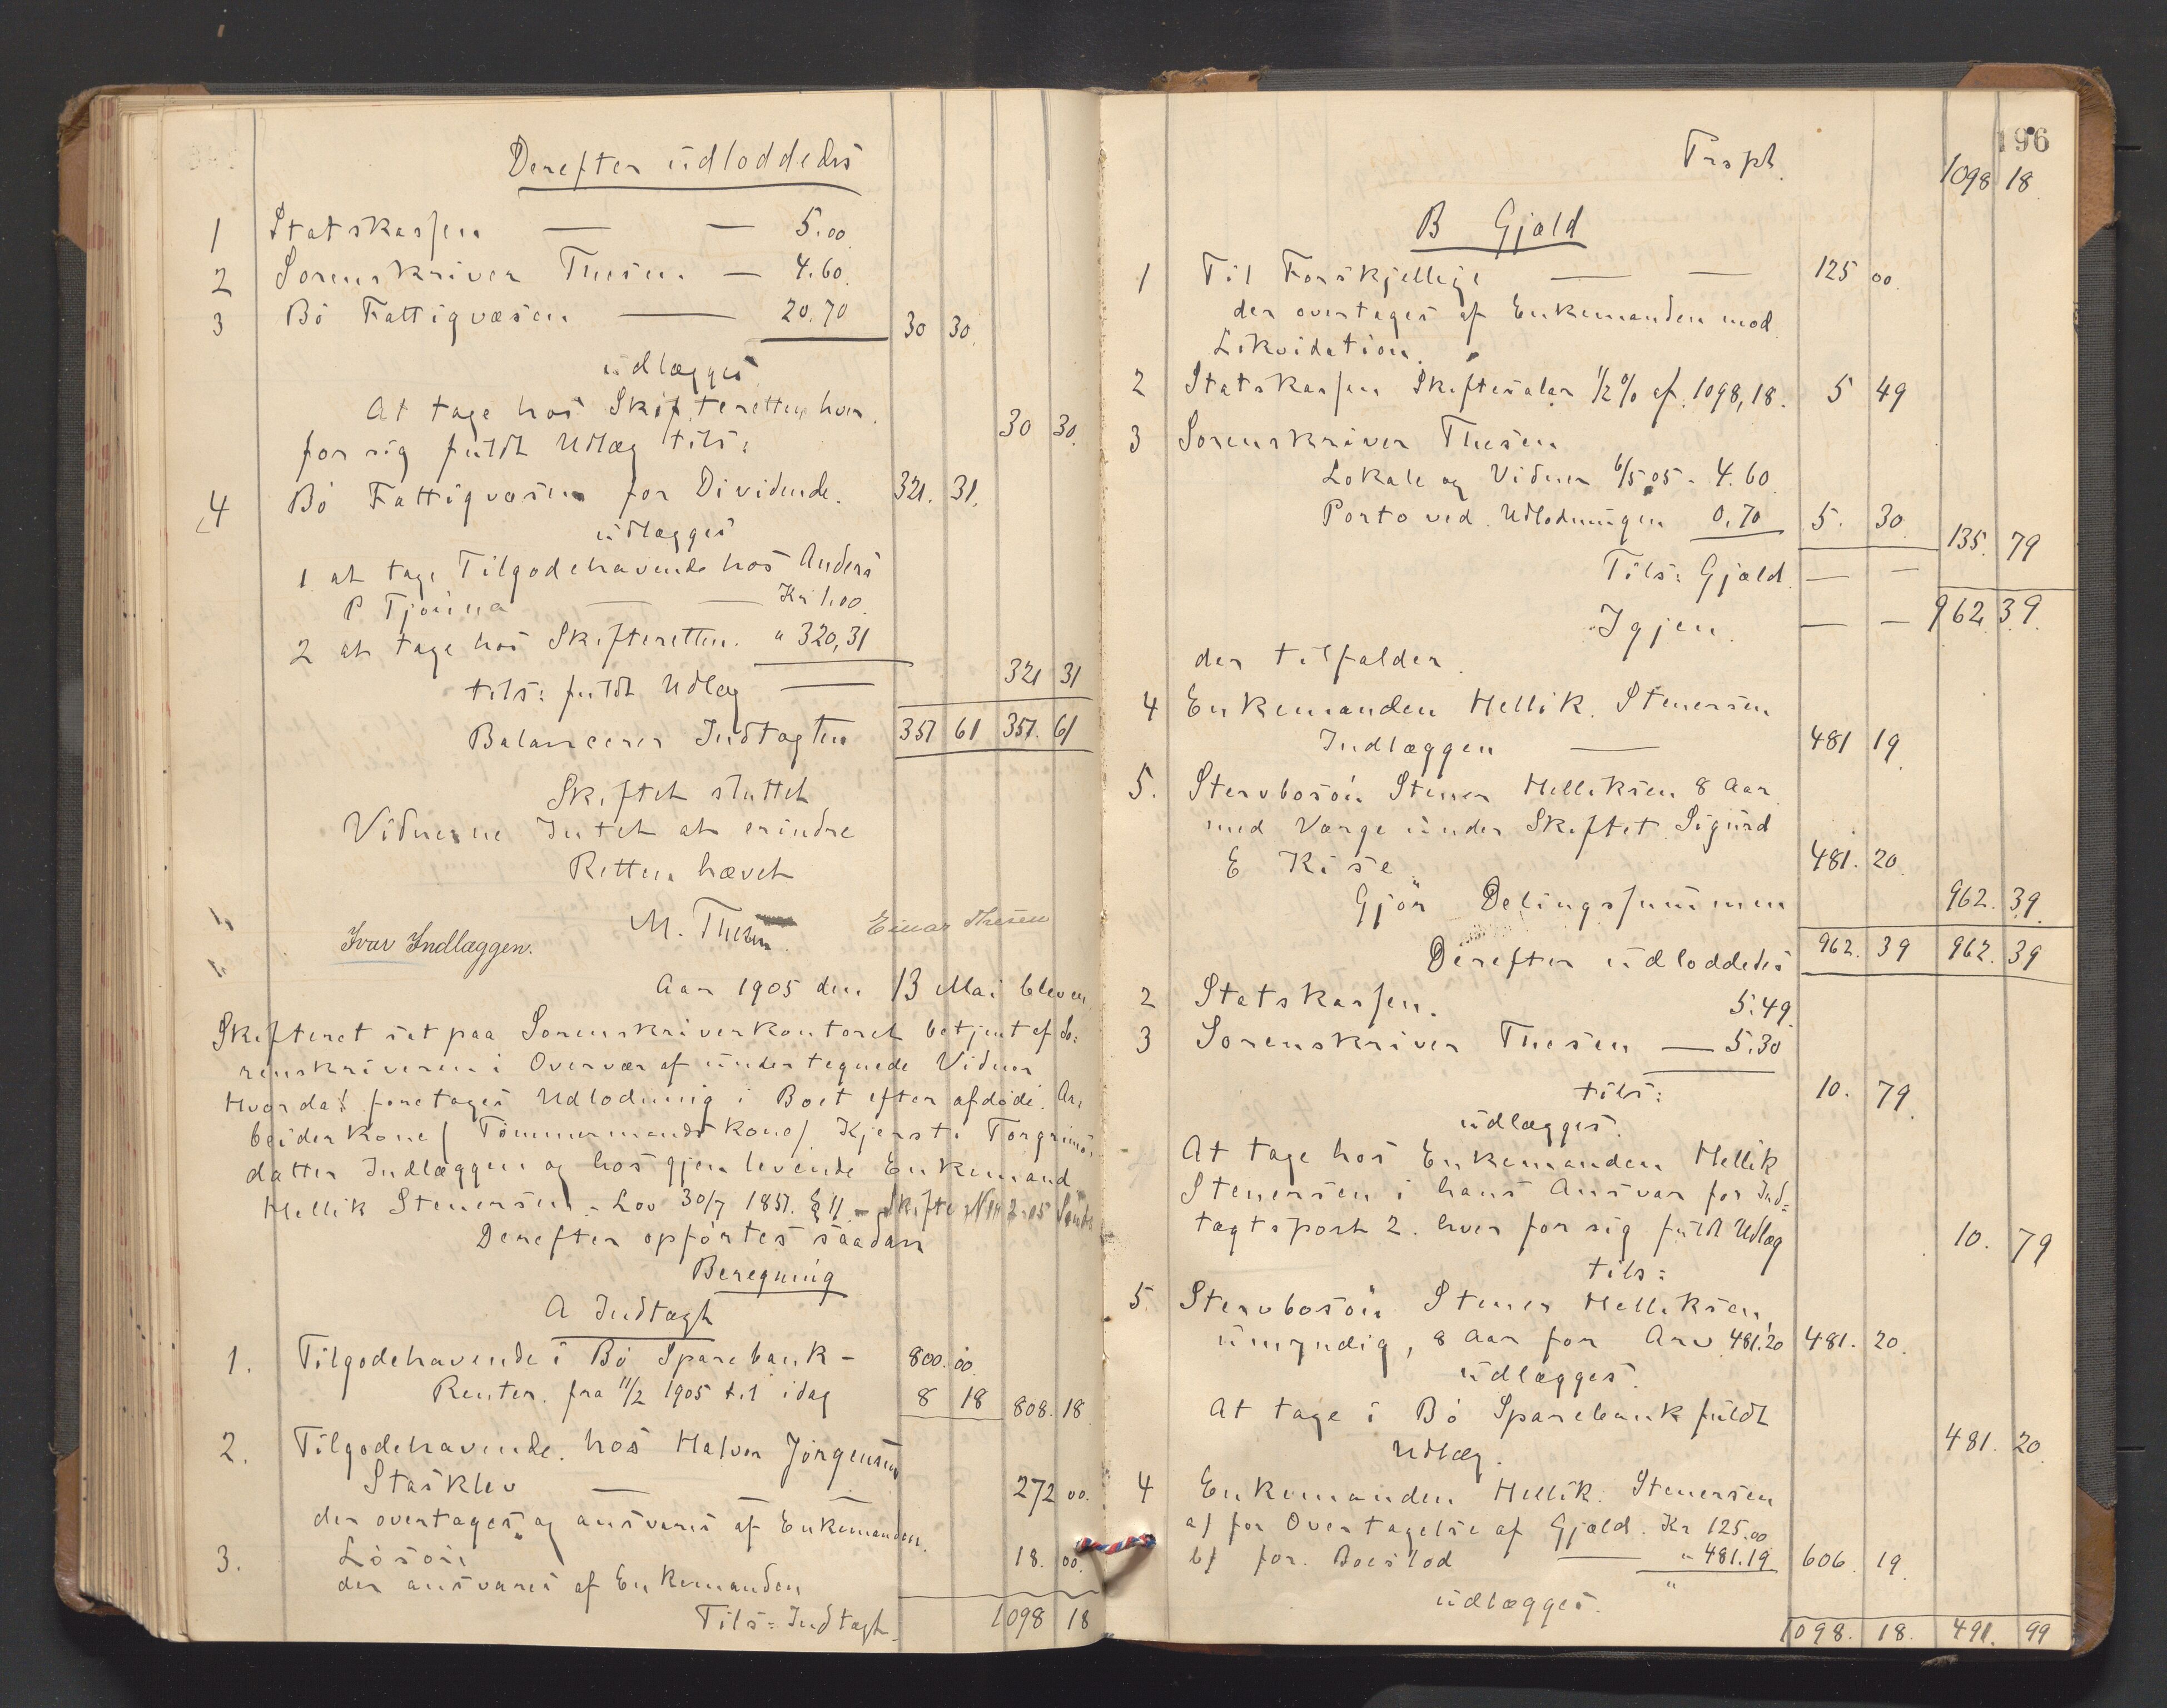 Derefter udloddedes
1 Statskassen — — 5.00
2 Sorenskriver Thesen — 4.60.
3 Bø Fattigvæsen — 20.70 30 30.
udlægges
At tage hos Skifteretten hver
for sig fuldt Udlæg tils: 30 30.
4 Bø Fattigvæsen for Dividende. 321. 31.
udlægges
1 at tage Tilgodehavende hos Anders
P Tjønna — — Kr 1.00.
2 at tage hos Skifteretten. " 320,31
tils: fuldt Udlæg — 321 31
Balancerer Indtægten 351 61 351. 61
Skiftet sluttet
Vidnerne Intet at erindre
Retten hævet
M. Thesen Einar Thesen
Ivar Indlæggen.
Aar 1905 den 13 Mai blev en
Skifteret sat paa Sorenskriverkontoret betjent af So-
renskriveren i Overvær af undertegnede Vidner
Hvorda! foretages Udlodning i Boet efter afdøde Ar-
beiderkone/ Tømmermandskone/ Kjersti Torgrims-
datter Indlæggen og hos gjenlevende Enkemand
Hellik Stenersen. - Lov 30/7 1851. § 11 - Skifte Nr 2-05
Derefter opførtes saadan
Beregning
A Indtægt
1. Tilgodehavende i Bø Sparebank - 800. 00.
Renter. fra 11/2 1905 til idag 8 18 808. 18
2. Tilgodehavende. hos Halvor Jørgensen
Stasklev — — 272 00.
der overtages og ansvares af Enkemanden.
3. Løsøre 18. 00.
der ansvares af Enkemanden
Tils: Indtægt 1098 18
196
Trspt. 1098 18
B Gjæld
1 Til Forskjellige — — 125 00.
der overtages af Enkemanden mod
Likvidation.
2 Statskassen Skiftesalær 1/2 % af 1098,18. 5 49
3 Sorenskriver Thesen
Lokale og Vidner 6/5 05 - 4.60
Porto ved Udlodningen 0.70 5. 30
Tils: Gjæld — — 135. 79
Igjen — — 962 39.
der tilfalder
4 Enkemanden Hellik. Stenersen
Indlæggen — 481 19
5. Stervbosøn Stener Helliksen 8 Aar
med Værge under Skiftet Sigurd
E Kise 481. 20
Gjør Delingssummen 962. 39
962. 39 962. 39
Derefter udloddedes
2 Statskassen. 5.49
3 Sorenskriver Thesen — 5.30
tils: 10. 79
udlægges.
At tage hos Enkemanden Hellik
Stenersen i hans Ansvar for Ind-
tægtspost 2. hver for sig fuldt Udlæg
tils: 10. 79
5. Stervbosøn Stener Helliksen
umyndig, 8 Aar for Arv 481.20 481. 20.
udlægges.
At tage i Bø Sparebank fuldt
Udlæg. 481. 20
4 Enkemanden Hellik. Stenersen
a/ for Overtagelse af Gjæld. Kr 125.00
b/ for. Boeslod — " 481.19 606 19.
udlægges.
1098. 18. 491. 99